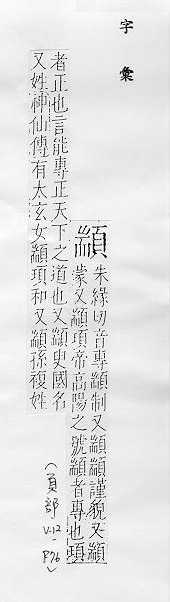 字彙
顓
朱緣切音專顓制又顓顓謹貌又顓
蒙又顓頊帝高陽之號顓者專也頊
者正也言能專正天下之道也又顓臾國名
又姓神仙傳有太玄女顓頊和又顓孫複姓
(頁部
V.12-
P76)